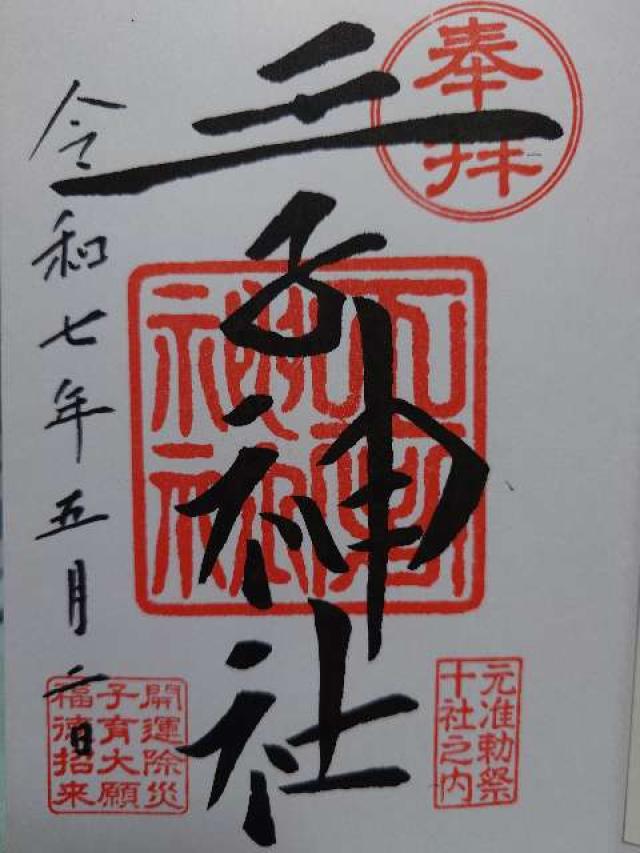 奉拝
王子神社
令和七年五月二日
元准勅祭
十社之内
開運除災
子育大願
福徳招来